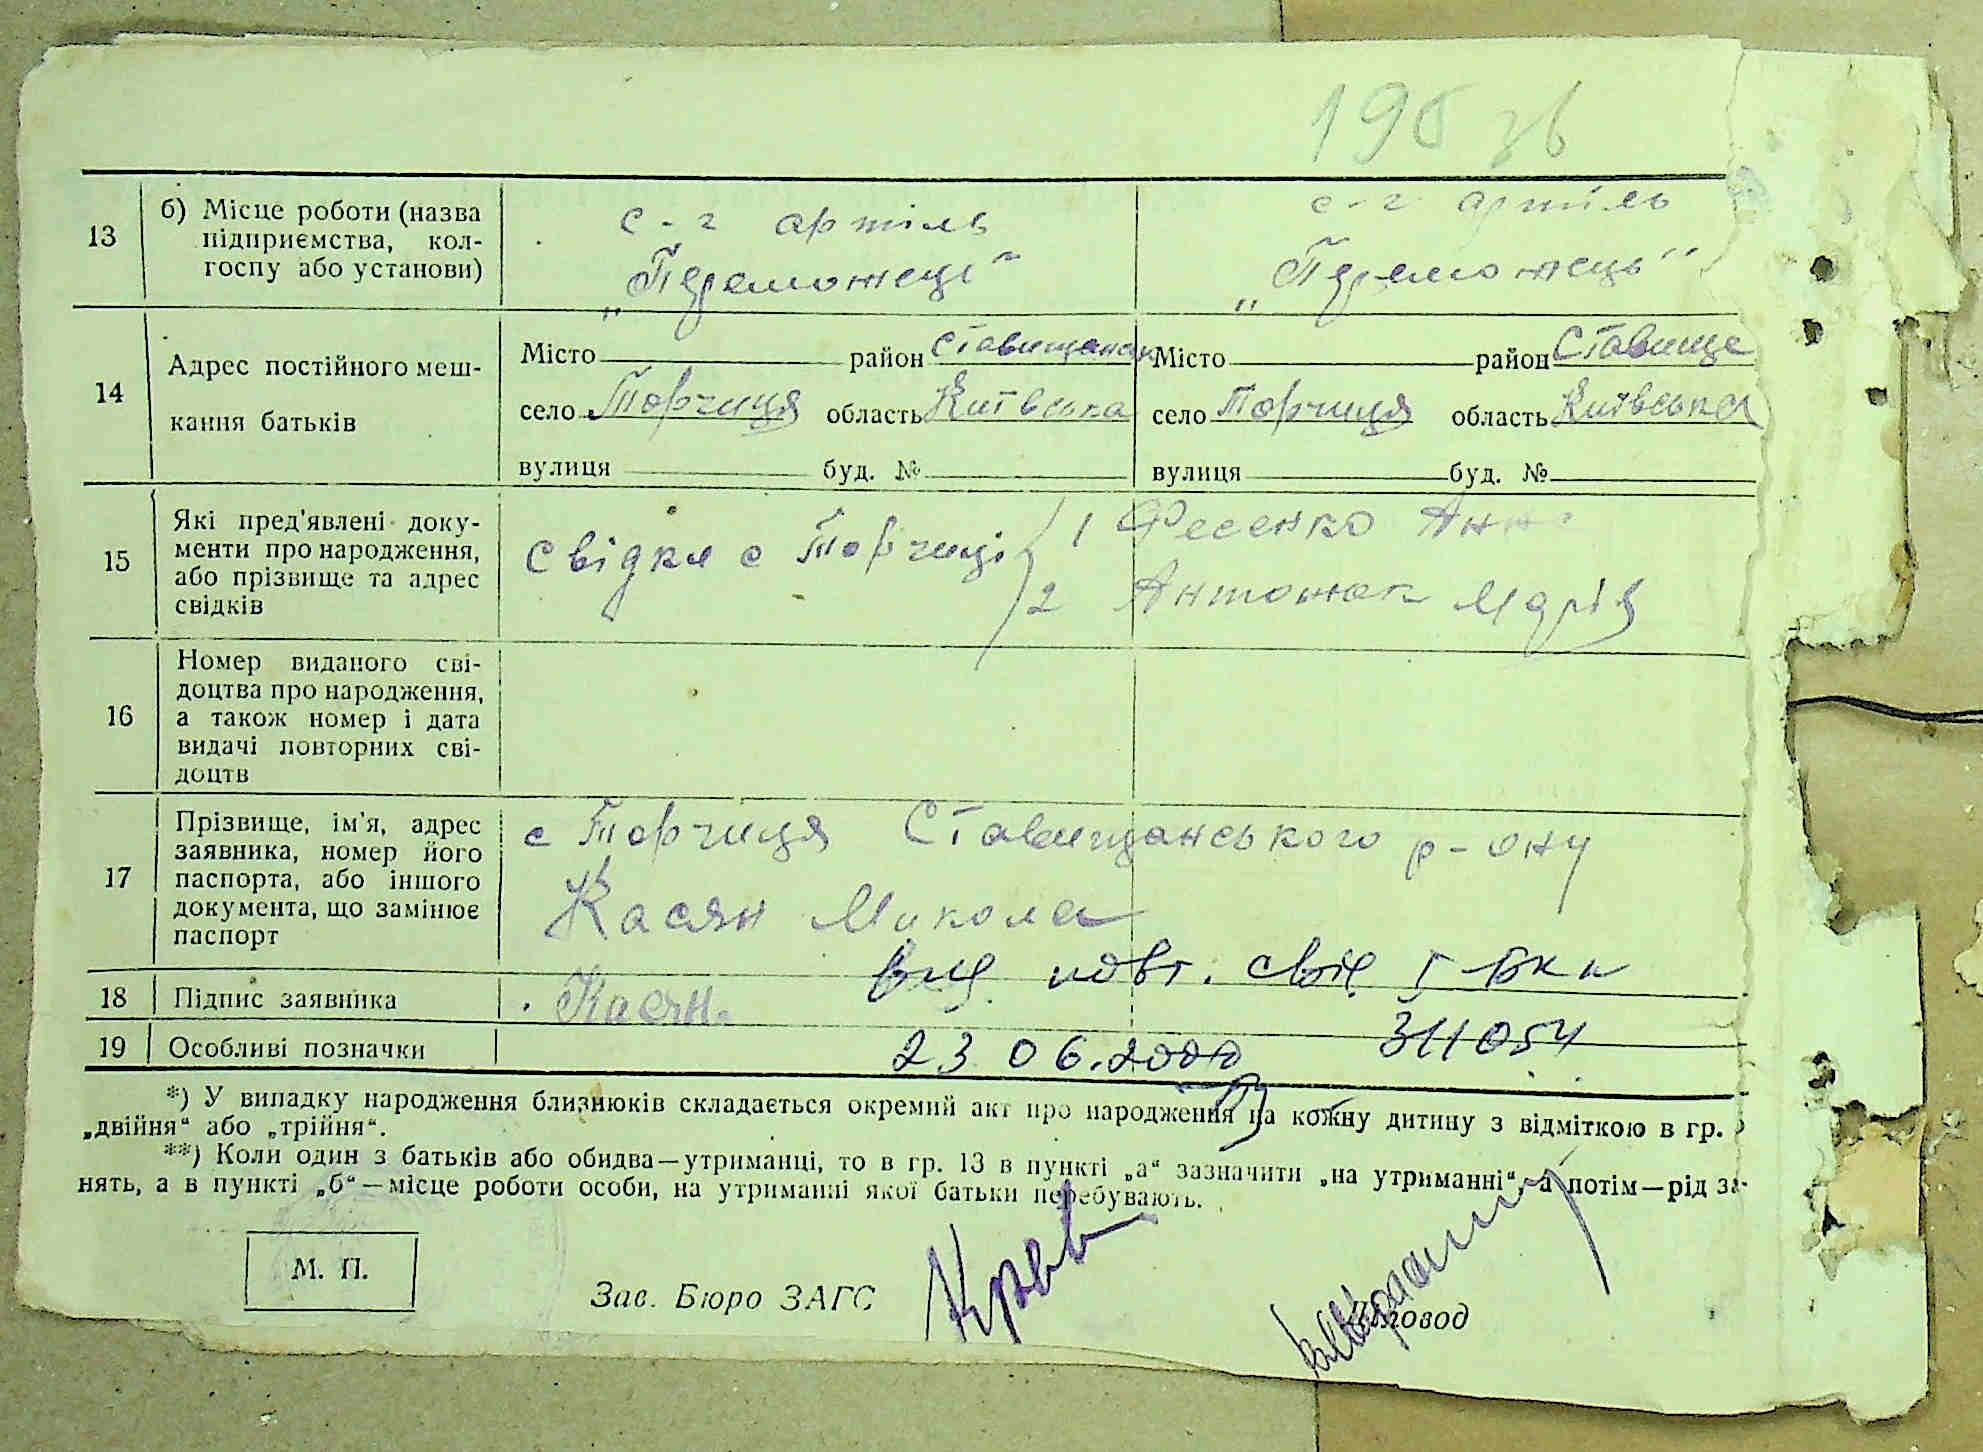 190 зв
13
б) Місце роботи (назва
підприємства, кол-
госпу або установи)
с-г артіль
„Переможець“
с-г артіль
„Переможець“
14
Адрес постійного меш-
кання батьків
Місто район Ставищанськ
село Торчиця область Київська
вулиця буд. №
Місто район Ставище
село Торчиця область Київська
вулиця буд. №
15
Які пред'явлені доку-
менти про народження,
або прізвище та адрес
свідків
Свідки с Торчиці
1 Фесенко Анна
2 Антонюк Марія
16
Номер виданого сві-
доцтва про народження,
а також номер і дата
видачі повторних сві-
доцтв
17
Прізвище, ім'я, адрес
заявника, номер його
паспорта, або іншого
документа, що замінює
паспорт
с Торчиця Ставищанського р-ону
Касян Микола
вид повт. свід І-БК №
18 Підпис заявника
Касян.
19 Особливі позначки
23 06.2000 311054
*) У випадку народження близнюків складається окремий акт про народження на кожну дитину з відміткою в гр.
„двійня“ або „трійня“.
**) Коли один з батьків або обидва—утриманці, то в гр. 13 в пункті „а“ зазначити „на утриманні“, а потім—рід за-
нять, а в пункті „б“—місце роботи особи, на утриманні якої батьки перебувають.
М. П.
Зав. Бюро ЗАГС
Діловод